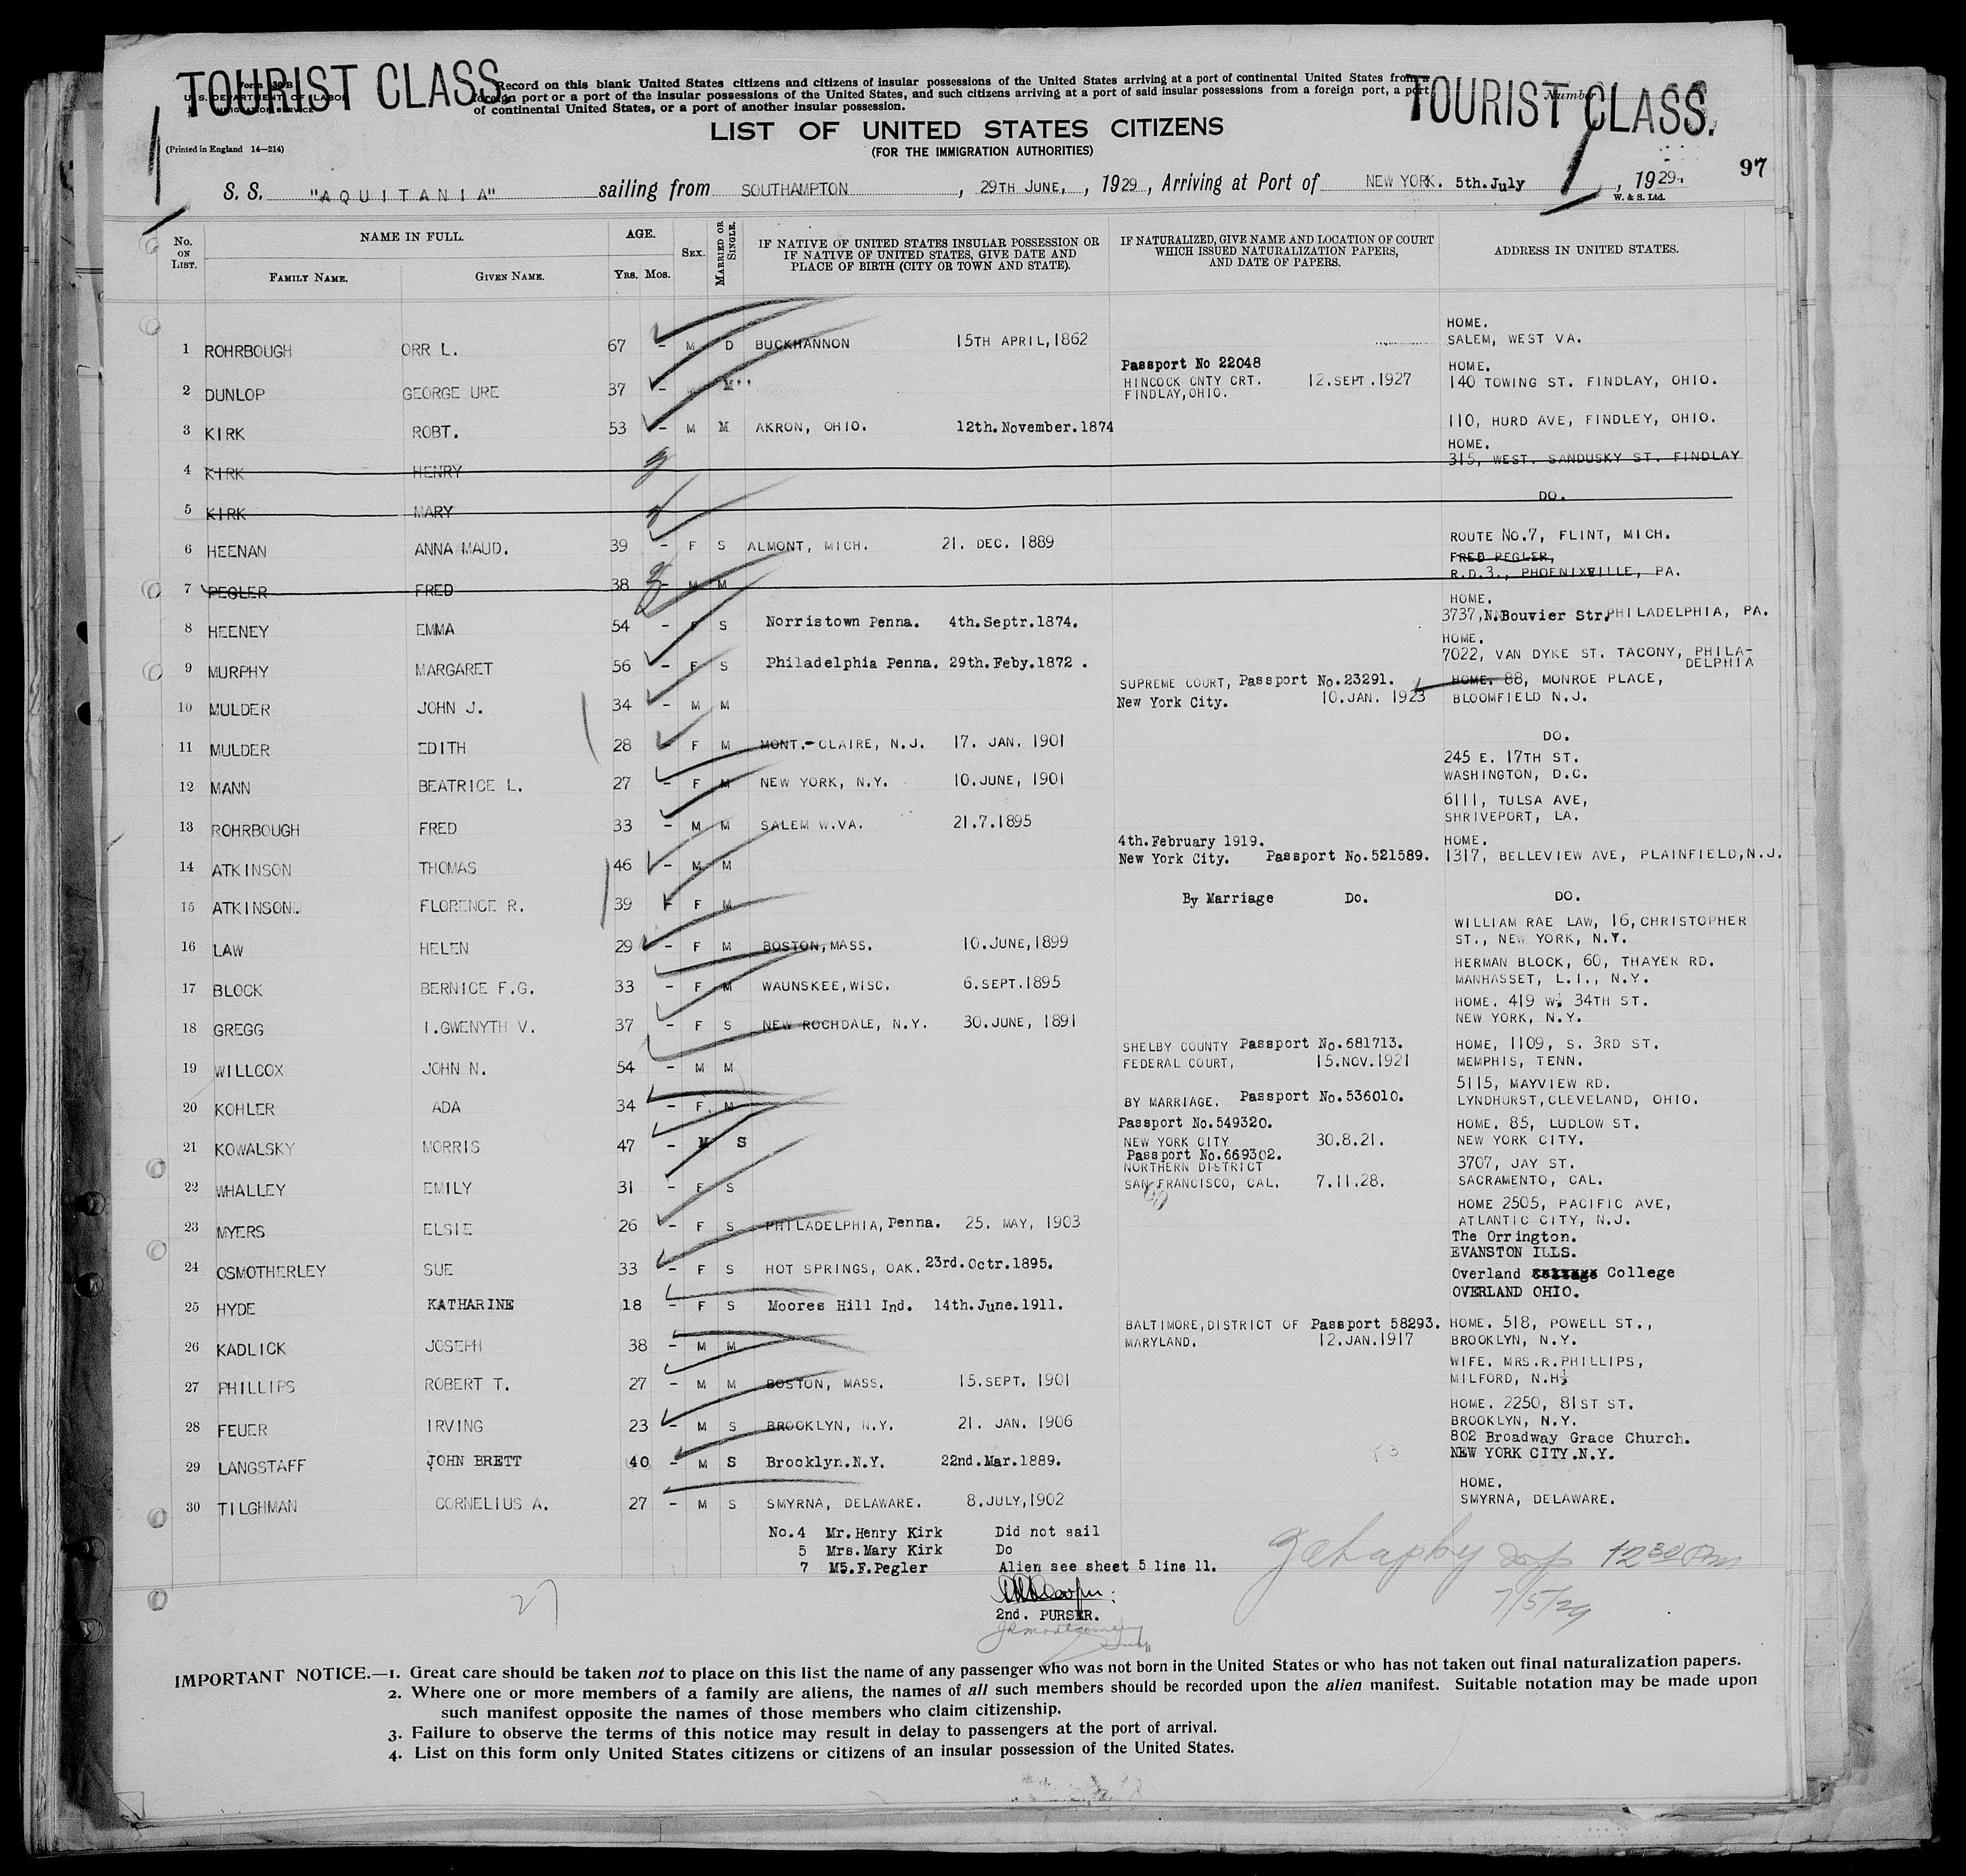 TOURIST CLASS.
TOURIST CLASS.
Form 30B
U. S. DEPARTMENT OF LABOR
IMMIGRATION SERVICE
Record on this blank United States citizens and citizens of insular possessions of the United States arriving at a port of continental United States from a
foreign port or a port of the insular possessions of the United States, and such citizens arriving at a port of said insular possessions from a foreign port, a port
of continental United States, or a port of another insular possession.
Number
LIST OF UNITED STATES CITIZENS
(FOR THE IMMIGRATION AUTHORITIES)
(Printed in England 14—214)
97
S. S. "AQUITANIA" sailing from SOUTHAMPTON, 29TH JUNE, , 1929, Arriving at Port of NEW YORK. 5th.July , 1929.
W. & S. Ltd.
No. ON LIST. NAME IN FULL. FAMILY NAME. GIVEN NAME. AGE. Yrs. Mos. SEX. MARRIED OR SINGLE. IF NATIVE OF UNITED STATES INSULAR POSSESSION OR IF NATIVE OF UNITED STATES, GIVE DATE AND PLACE OF BIRTH (CITY OR TOWN AND STATE). IF NATURALIZED, GIVE NAME AND LOCATION OF COURT WHICH ISSUED NATURALIZATION PAPERS, AND DATE OF PAPERS. ADDRESS IN UNITED STATES.
HOME.
1 ROHRBOUGH ORR L. 67 - M D BUCKHANNON 15TH APRIL,1862 SALEM, WEST VA.
Passport No 22048 HOME.
2 DUNLOP GEORGE URE 37 - M HINCOCK CNTY CRT. 12.SEPT.1927 140 TOWING ST. FINDLAY, OHIO.
FINDLAY,OHIO.
3 KIRK ROBT. 53 - M M AKRON, OHIO. 12th.November.1874 110, HURD AVE, FINDLEY, OHIO.
HOME.
4 KIRK HENRY 315, WEST. SANDUSKY ST. FINDLAY
5 KIRK MARY DO.
6 HEENAN ANNA MAUD. 39 - F S ALMONT, MICH. 21. DEC. 1889 ROUTE No.7, FLINT, MICH.
FRED PEGLER,
7 PEGLER FRED 38 - M M R.D.3., PHOENIXVILLE, PA.
HOME.
8 HEENEY EMMA 54 - F S Norristown Penna. 4th.Septr.1874. 3737,N.Bouvier Str.PHILADELPHIA, PA.
HOME.
9 MURPHY MARGARET 56 - F S Philadelphia Penna. 29th.Feby.1872 . 7022, VAN DYKE ST. TACONY, PHILA-
DELPHIA
SUPREME COURT, Passport No.23291. HOME. 88, MONROE PLACE,
10 MULDER JOHN J. 34 - M M New York City. 10.JAN. 1923 BLOOMFIELD N.J.
11 MULDER EDITH 28 - F M MONT.-CLAIRE, N.J. 17. JAN. 1901 DO.
245 E. 17TH ST.
12 MANN BEATRICE L. 27 - F M NEW YORK, N.Y. 10.JUNE, 1901 WASHINGTON, D.C.
6111, TULSA AVE,
13 ROHRBOUGH FRED 33 - M M SALEM W.VA. 21.7.1895 SHRIVEPORT, LA.
4th.February 1919. HOME.
14 ATKINSON THOMAS 46 - M M New York City. Passport No.521589. 1317, BELLEVIEW AVE, PLAINFIELD,N.J.
15 ATKINSON. FLORENCE R. 39 - F M By Marriage Do. DO.
WILLIAM RAE LAW, 16,CHRISTOPHER
16 LAW HELEN 29 - F M BOSTON,MASS. 10.JUNE,1899 ST., NEW YORK, N.Y.
HERMAN BLOCK, 60, THAYER RD.
17 BLOCK BERNICE F.G. 33 - F M WAUNSKEE,WISC. 6.SEPT.1895 MANHASSET, L.I., N.Y.
HOME. 419 W. 34TH ST.
18 GREGG I.GWENYTH V. 37 - F S NEW ROCHDALE, N.Y. 30.JUNE, 1891 NEW YORK, N.Y.
SHELBY COUNTY Passport No.681713. HOME, 1109, S. 3RD ST.
19 WILLCOX JOHN N. 54 - M M FEDERAL COURT, 15.NOV.1921 MEMPHIS, TENN.
5115, MAYVIEW RD.
20 KOHLER ADA 34 - F. M BY MARRIAGE. Passport No.536010. LYNDHURST,CLEVELAND, OHIO.
Passport No.549320. HOME. 85, LUDLOW ST.
21 KOWALSKY MORRIS 47 - M S NEW YORK CITY 30.8.21. NEW YORK CITY.
Passport No.669302.
NORTHERN DISTRICT 3707, JAY ST.
22 WHALLEY EMILY 31 - F S SAN FRANCISCO, CAL. 7.11.28. SACRAMENTO, CAL.
HOME 2505, PACIFIC AVE,
23 MYERS ELSIE 26 - F S PHILADELPHIA,Penna. 25. MAY, 1903 ATLANTIC CITY, N.J.
The Orrington.
EVANSTON ILLS.
24 OSMOTHERLEY SUE 33 - F S HOT SPRINGS, OAK. 23rd.Octr.1895.
Overland College
25 HYDE KATHARINE 18 - F S Moores Hill Ind. 14th.June.1911. OVERLAND OHIO.
BALTIMORE,DISTRICT OF Passport 58293. HOME. 518, POWELL ST.,
26 KADLICK JOSEPH 38 - M M MARYLAND. 12.JAN.1917 BROOKLYN, N.Y.
WIFE. MRS.R.PHILLIPS,
27 PHILLIPS ROBERT T. 27 - M M BOSTON, MASS. 15.SEPT. 1901 MILFORD, N.H.
HOME. 2250, 81ST ST.
28 FEUER IRVING 23 - M S BROOKLYN, N.Y. 21. JAN. 1906 BROOKLYN, N.Y.
802 Broadway Grace Church.
29 LANGSTAFF JOHN BRETT 40 - M S Brooklyn.N.Y. 22nd.Mar.1889. NEW YORK CITY.N.Y.
HOME.
30 TILGHMAN CORNELIUS A. 27 - M S SMYRNA, DELAWARE. 8.JULY,1902 SMYRNA, DELAWARE.
No.4 Mr.Henry Kirk Did not sail
5 Mrs.Mary Kirk Do
7 M5.F.Pegler Alien see sheet 5 line 11.
12 30 Pm
7/5/29
27
2nd. PURSER.
IMPORTANT NOTICE.—1. Great care should be taken not to place on this list the name of any passenger who was not born in the United States or who has not taken out final naturalization papers.
2. Where one or more members of a family are aliens, the names of all such members should be recorded upon the alien manifest. Suitable notation may be made upon
such manifest opposite the names of those members who claim citizenship.
3. Failure to observe the terms of this notice may result in delay to passengers at the port of arrival.
4. List on this form only United States citizens or citizens of an insular possession of the United States.